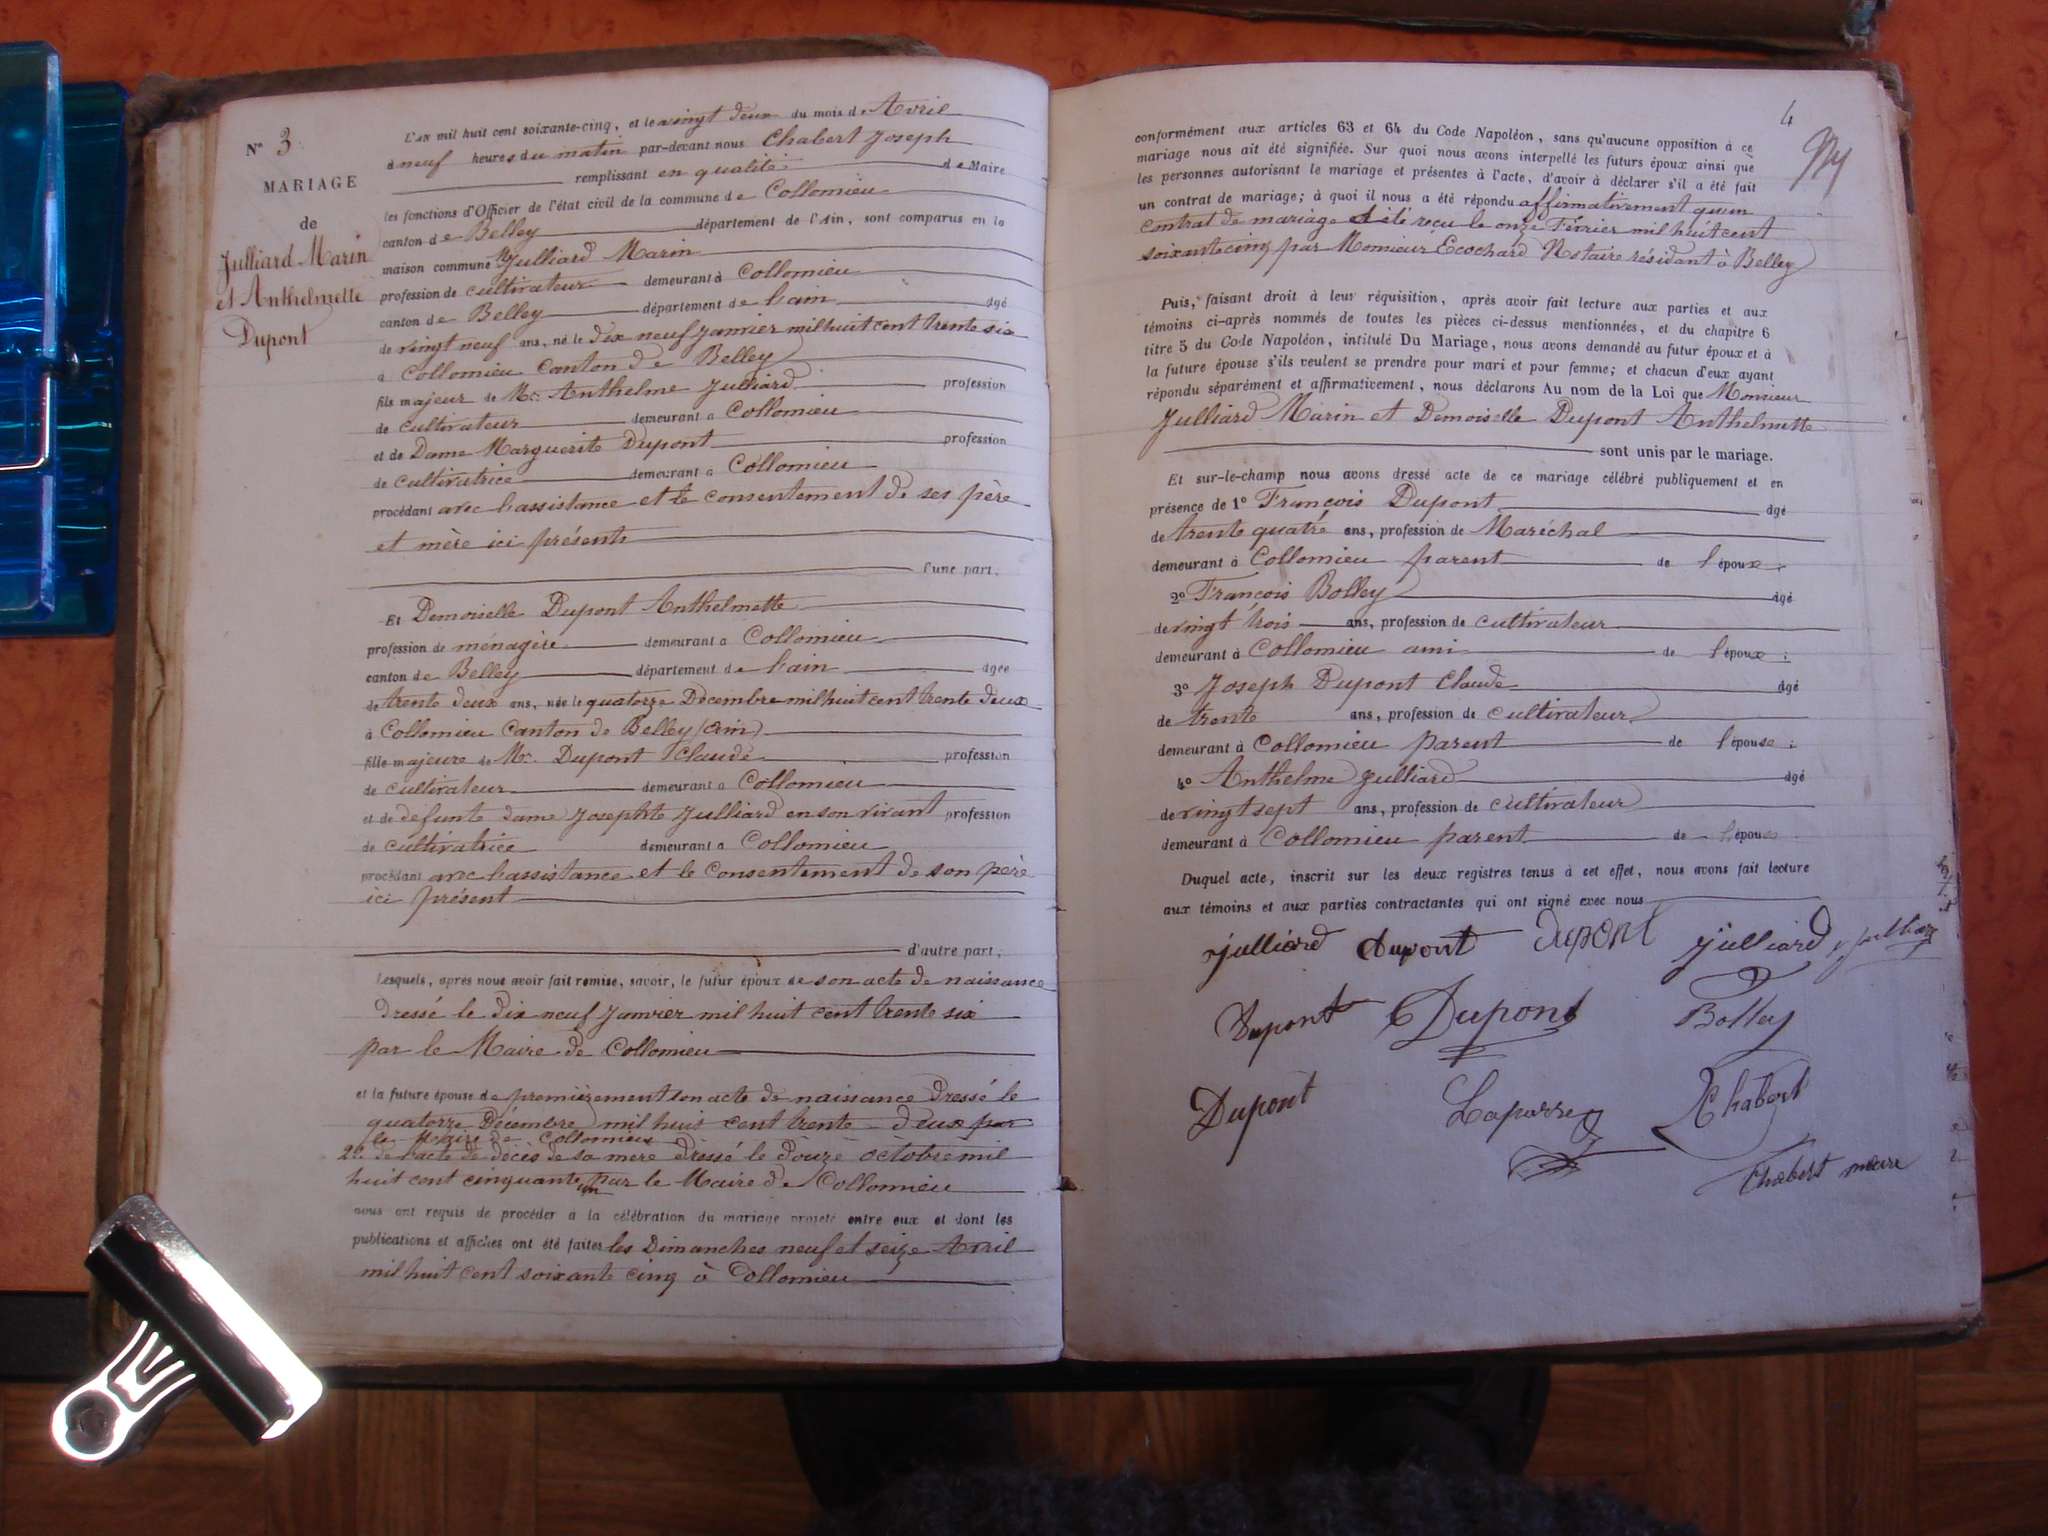 N° 3
MARIAGE
de
Julliard Marin
et Anthelmette
Dupont
L'AN mil huit cent soixante-cinq, et le vingt deux du mois d'Avril
à neuf heures du matin par-devant nous Chabert Joseph
remplissant en qualité de Maire
les fonctions d'Officier de l'état civil de la commune de Collomieu
canton de Belley département de l'Ain, sont comparus en la
maison commune Mr Julliard Marin
profession de cultivateur demeurant à Collomieu
canton de Belley département de l'ain âgé
de vingt neuf ans, né le dix neuf Janvier mil huit cent trente six
à Collomieu Canton de Belley
fils majeur de Mr. Anthelme Julliard profession
de cultivateur demeurant à Collomieu
et de Dame Marguerite Dupont profession
de cultivatrice demeurant à Collomieu
procédant avec l'assistance et le consentement de ses père
et mère ici présents
l'une part.
Et Demoiselle Dupont Anthelmette
profession de ménagère demeurant à Collomieu
canton de Belley département de l'ain âgée
de trente deux ans, née le quatorze Décembre mil huit cent trente deux
à Collomieu Canton de Belley (Ain)
fille majeure de Mr. Dupont Claude profession
de cultivateur demeurant à Collomieu
et de défunte dame Josephte Julliard en son vivant profession
de cultivatrice demeurant à Collomieu
procédant avec l'assistance et le consentement de son père
ici présent
d'autre part.
Lesquels, après nous avoir fait remise, savoir, le futur époux de son acte de naissance
dressé le dix neuf Janvier mil huit cent trente six
par le Maire de Collomieu
et la future épouse de premièrement son acte de naissance dressé le
quatorze Décembre mil huit cent trente deux par
le Maire de Collomieu
2° de l'acte de décès de sa mère dressé le douze octobre mil
huit cent cinquante un par le Maire de Collomieu
nous ont requis de procéder à la célébration du mariage projeté entre eux et dont les
publications et affiches ont été faites les Dimanches neuf et seize Avril
mil huit cent soixante cinq à Collomieu
4
conformément aux articles 63 et 64 du Code Napoléon, sans qu'aucune opposition à ce
mariage nous ait été signifiée. Sur quoi nous avons interpellé les futurs époux ainsi que
les personnes autorisant le mariage et présentes à l'acte, d'avoir à déclarer s'il a été fait
un contrat de mariage; à quoi il nous a été répondu affirmativement qu'un
contrat de mariage a été reçu le onze Février mil huit cent
soixante cinq par Monsieur Ecochard Notaire résidant à Belley
Puis, faisant droit à leur réquisition, après avoir fait lecture aux parties et aux
témoins ci-après nommés de toutes les pièces ci-dessus mentionnées, et du chapitre 6
titre 5 du Code Napoléon, intitulé Du Mariage, nous avons demandé au futur époux et à
la future épouse s'ils veulent se prendre pour mari et pour femme; et chacun d'eux ayant
répondu séparément et affirmativement, nous déclarons Au nom de la Loi que Monsieur
Julliard Marin et Demoiselle Dupont Anthelmette
sont unis par le mariage.
Et sur-le-champ nous avons dressé acte de ce mariage célébré publiquement et en
présence de 1° François Dupont âgé
de trente quatre ans, profession de Maréchal
demeurant à Collomieu parent de l'époux;
2° François Bolley âgé
de vingt trois ans, profession de cultivateur
demeurant à Collomieu ami de l'époux;
3° Joseph Dupont Claude âgé
de trente ans, profession de cultivateur
demeurant à Collomieu parent de l'épouse;
4° Anthelme Julliard âgé
de vingt sept ans, profession de cultivateur
demeurant à Collomieu parent de l'épouse
Duquel acte, inscrit sur les deux registres tenus à cet effet, nous avons fait lecture
aux témoins et aux parties contractantes qui ont signé avec nous
julliard Dupont Dupont julliard
Dupont Dupont Bolley
Dupont Chabert
Chabert maire